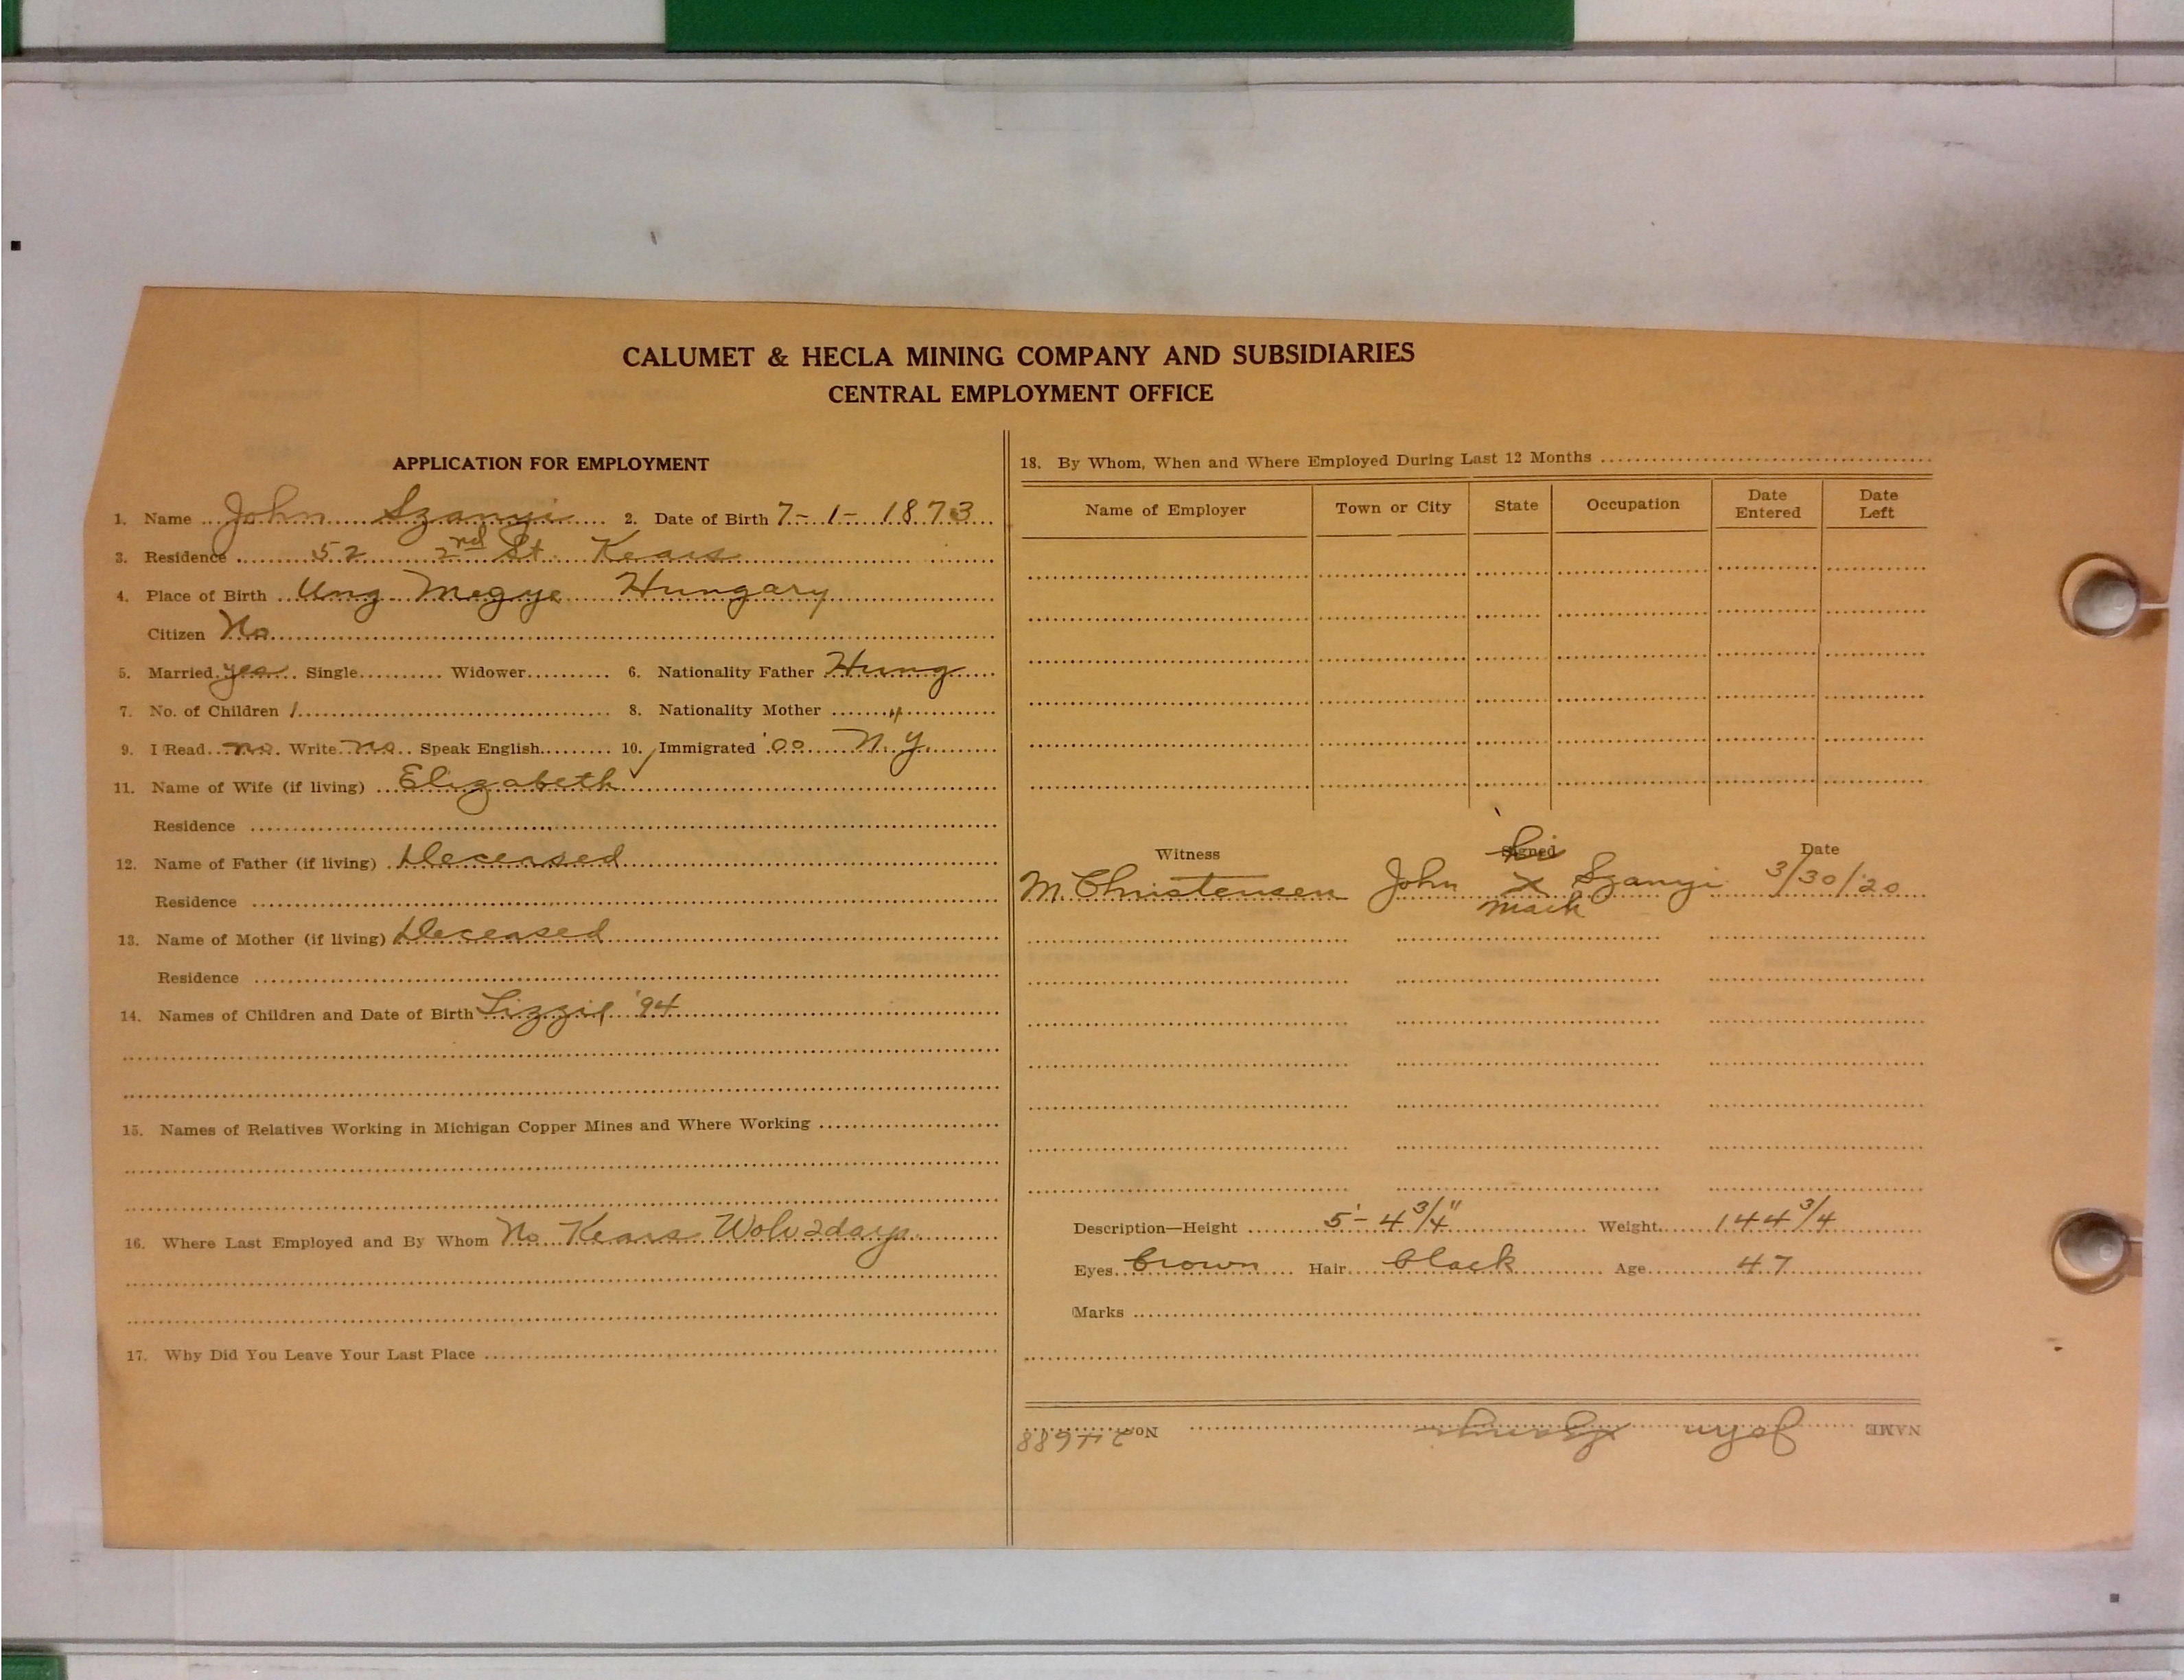 CALUMET & HECLA MINING COMPANY AND SUBSIDIARIES
CENTRAL EMPLOYMENT OFFICE
APPLICATION FOR EMPLOYMENT
1. Name John Szanyi 2. Date of Birth 7-1-1873
3. Residence 52 2nd St. Kears
4. Place of Birth Ung Megye Hungary
Citizen No
5. Married yes Single Widower 6. Nationality Father Hung
7. No. of Children 1 8. Nationality Mother "
9. I Read no Write no Speak English 10. Immigrated '00 N.Y.
11. Name of Wife (if living) Elizabeth
Residence
12. Name of Father (if living) Deceased
Residence
13. Name of Mother (if living) Deceased
Residence
14. Names of Children and Date of Birth Lizzie '94
15. Names of Relatives Working in Michigan Copper Mines and Where Working
16. Where Last Employed and By Whom No Kears Wolv 2 days
17. Why Did You Leave Your Last Place
18. By Whom, When and Where Employed During Last 12 Months
Name of Employer Town or City State Occupation Date Entered Date Left
Witness Signed Date
his
M. Christensen John X Szanyi 3/30/20
mark
Description—Height 5'-4 3/4" Weight 144 3/4
Eyes brown Hair black Age 47
Marks
NAME John Szanyi No.